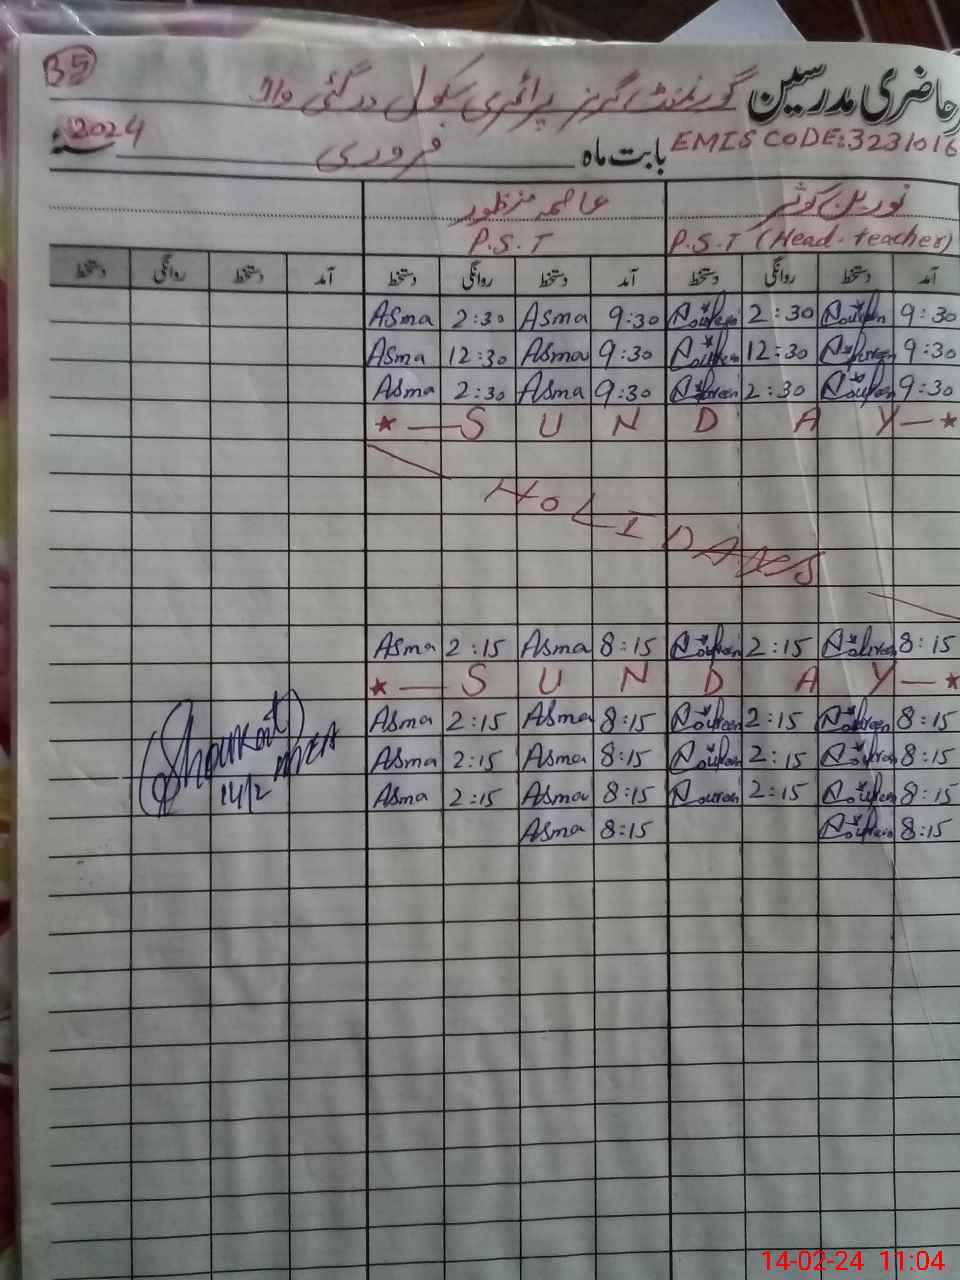 35
حاضری مدرسین گورنمنٹ گرلز پرائمری سکول درگئی
EMIS CODE:3231016 بابت ماہ فروری 2024
نورین کوثر عاصمہ منظور
P.S.T (Head-teacher) P.S.T
آمد دستخط روانگی دستخط آمد دستخط روانگی دستخط آمد دستخط روانگی دستخط
9:30 Noureen 2:30 Noureen 9:30 Asma 2:30 Asma
9:30 Noureen 12:30 Noureen 9:30 Asma 12:30 Asma
9:30 Noureen 2:30 Noureen 9:30 Asma 2:30 Asma
★ — S U N D A Y — ★
HOLIDAYS
8:15 Noureen 2:15 Noureen 8:15 Asma 2:15 Asma
★ — S U N D A Y — ★
8:15 Noureen 2:15 Noureen 8:15 Asma 2:15 Asma
8:15 Noureen 2:15 Noureen 8:15 Asma 2:15 Asma
8:15 Noureen 2:15 Noureen 8:15 Asma 2:15 Asma
8:15 Noureen 8:15 Asma
Shoukat MEA
14/2
14-02-24 11:04